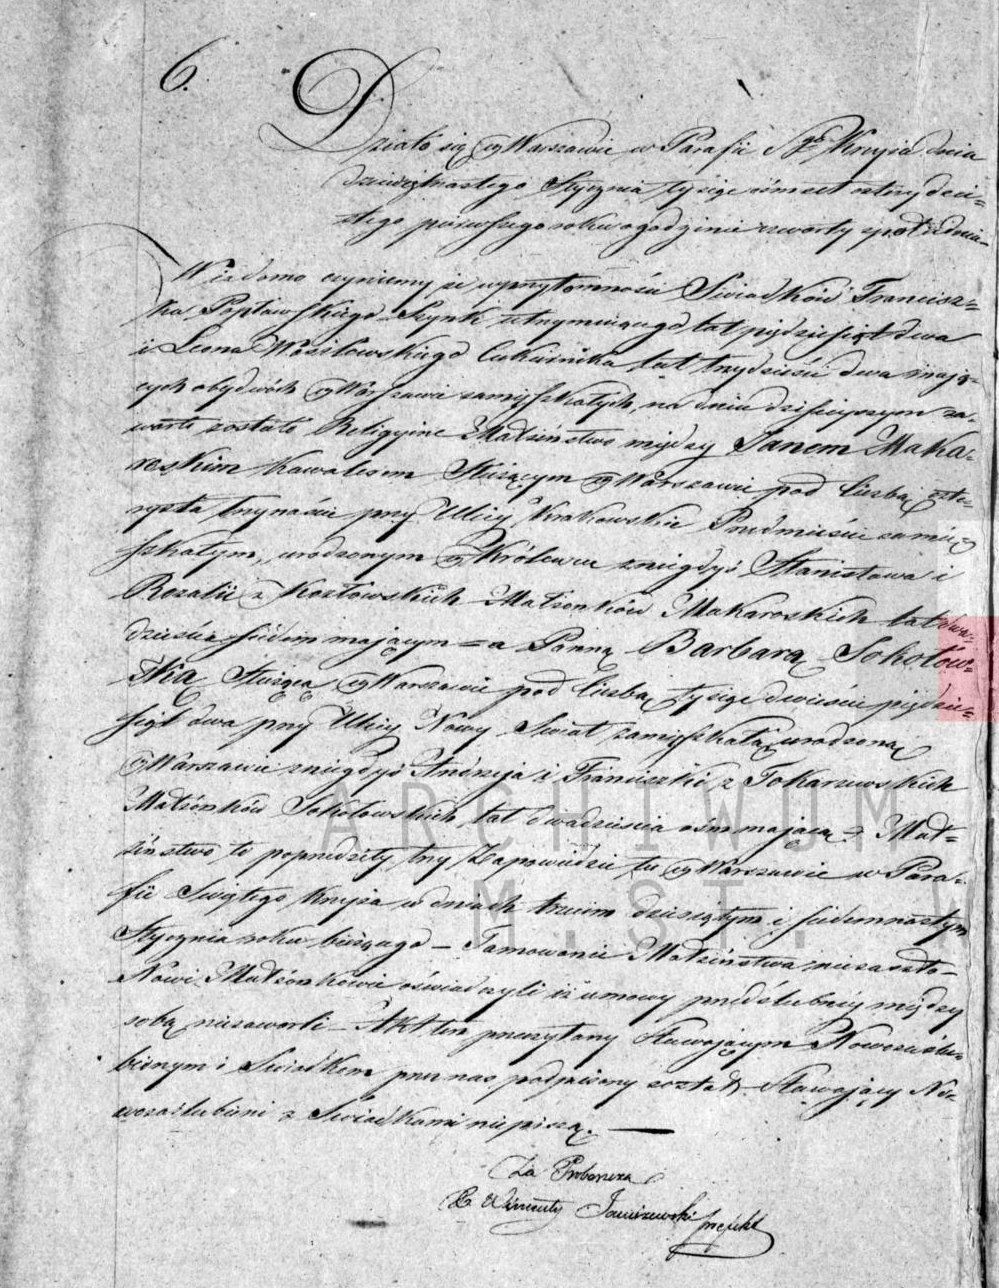 6.
Działo się w Warszawie w Parafii Sgo Krzyża dnia
dziewiętnastego Stycznia tysiąc ośmset czterdzie=
stego pierwszego roku o godzinie czwarty z południa–
Wiadomo czyniemy iż w przytomności Swiadków Francisz=
ka Popławskiego Szynk utrzymuiącego lat pięćdziesiąt dwa
i Leona Wasilowskiego Cukiernika lat trzydzieści dwa mają=
cych obydwóch w Warszawie zamięszkałych, na dniu dzisieyszym za=
warte zostało Religyine Małżeństwo między Janem Maka=
roskim kawalerem Służącym w Warszawie pod liczbą czte=
rysta trzynaście przy Ulicy Krakowskie Przedmieście zamię=
szkałym, urodzonym w Królewcu z niegdyś Stanisława i
Rozalii z Kozłowskich Małżonków Makaroskich lat dwa=
dzieścia siedem mającym = a Panną Barbarą Sokołow=
ską Służącą w Warszawie pod liczbą tysiąc dwieście pięćdzie=
siąt dwa przy Ulicy Nowy Swiat zamięszkałą, urodzoną
w Warszawie z niegdyś Andrzeja i Franciszki z Tokarzewskich
Małżonków Sokołowskich, lat dwadzieścia ośm mającą = Mał=
żeństwo to poprzedziły trzy Zapowiedzie tu w Warszawie w Para=
fii Swiętego Krzyża w dniach trzecim dziesiątym i siedemnastym
Stycznia roku bieżącego – Tamowanie Małżeństwa nie zaszło –
Nowi Małżonkowie oświadczyli iż umowy przedślubnéy między
sobą nie zawarli – Akt ten przeczytany Stawającym Nowozaślu=
bionym i Swiadkom przez nas podpisany został. Stawający No=
wozaślubieni z Swiadkami nie piszą. —
Za Proboszcza
X Wincenty Janiszewski prefekt
ARCHIWUM
M. ST. W